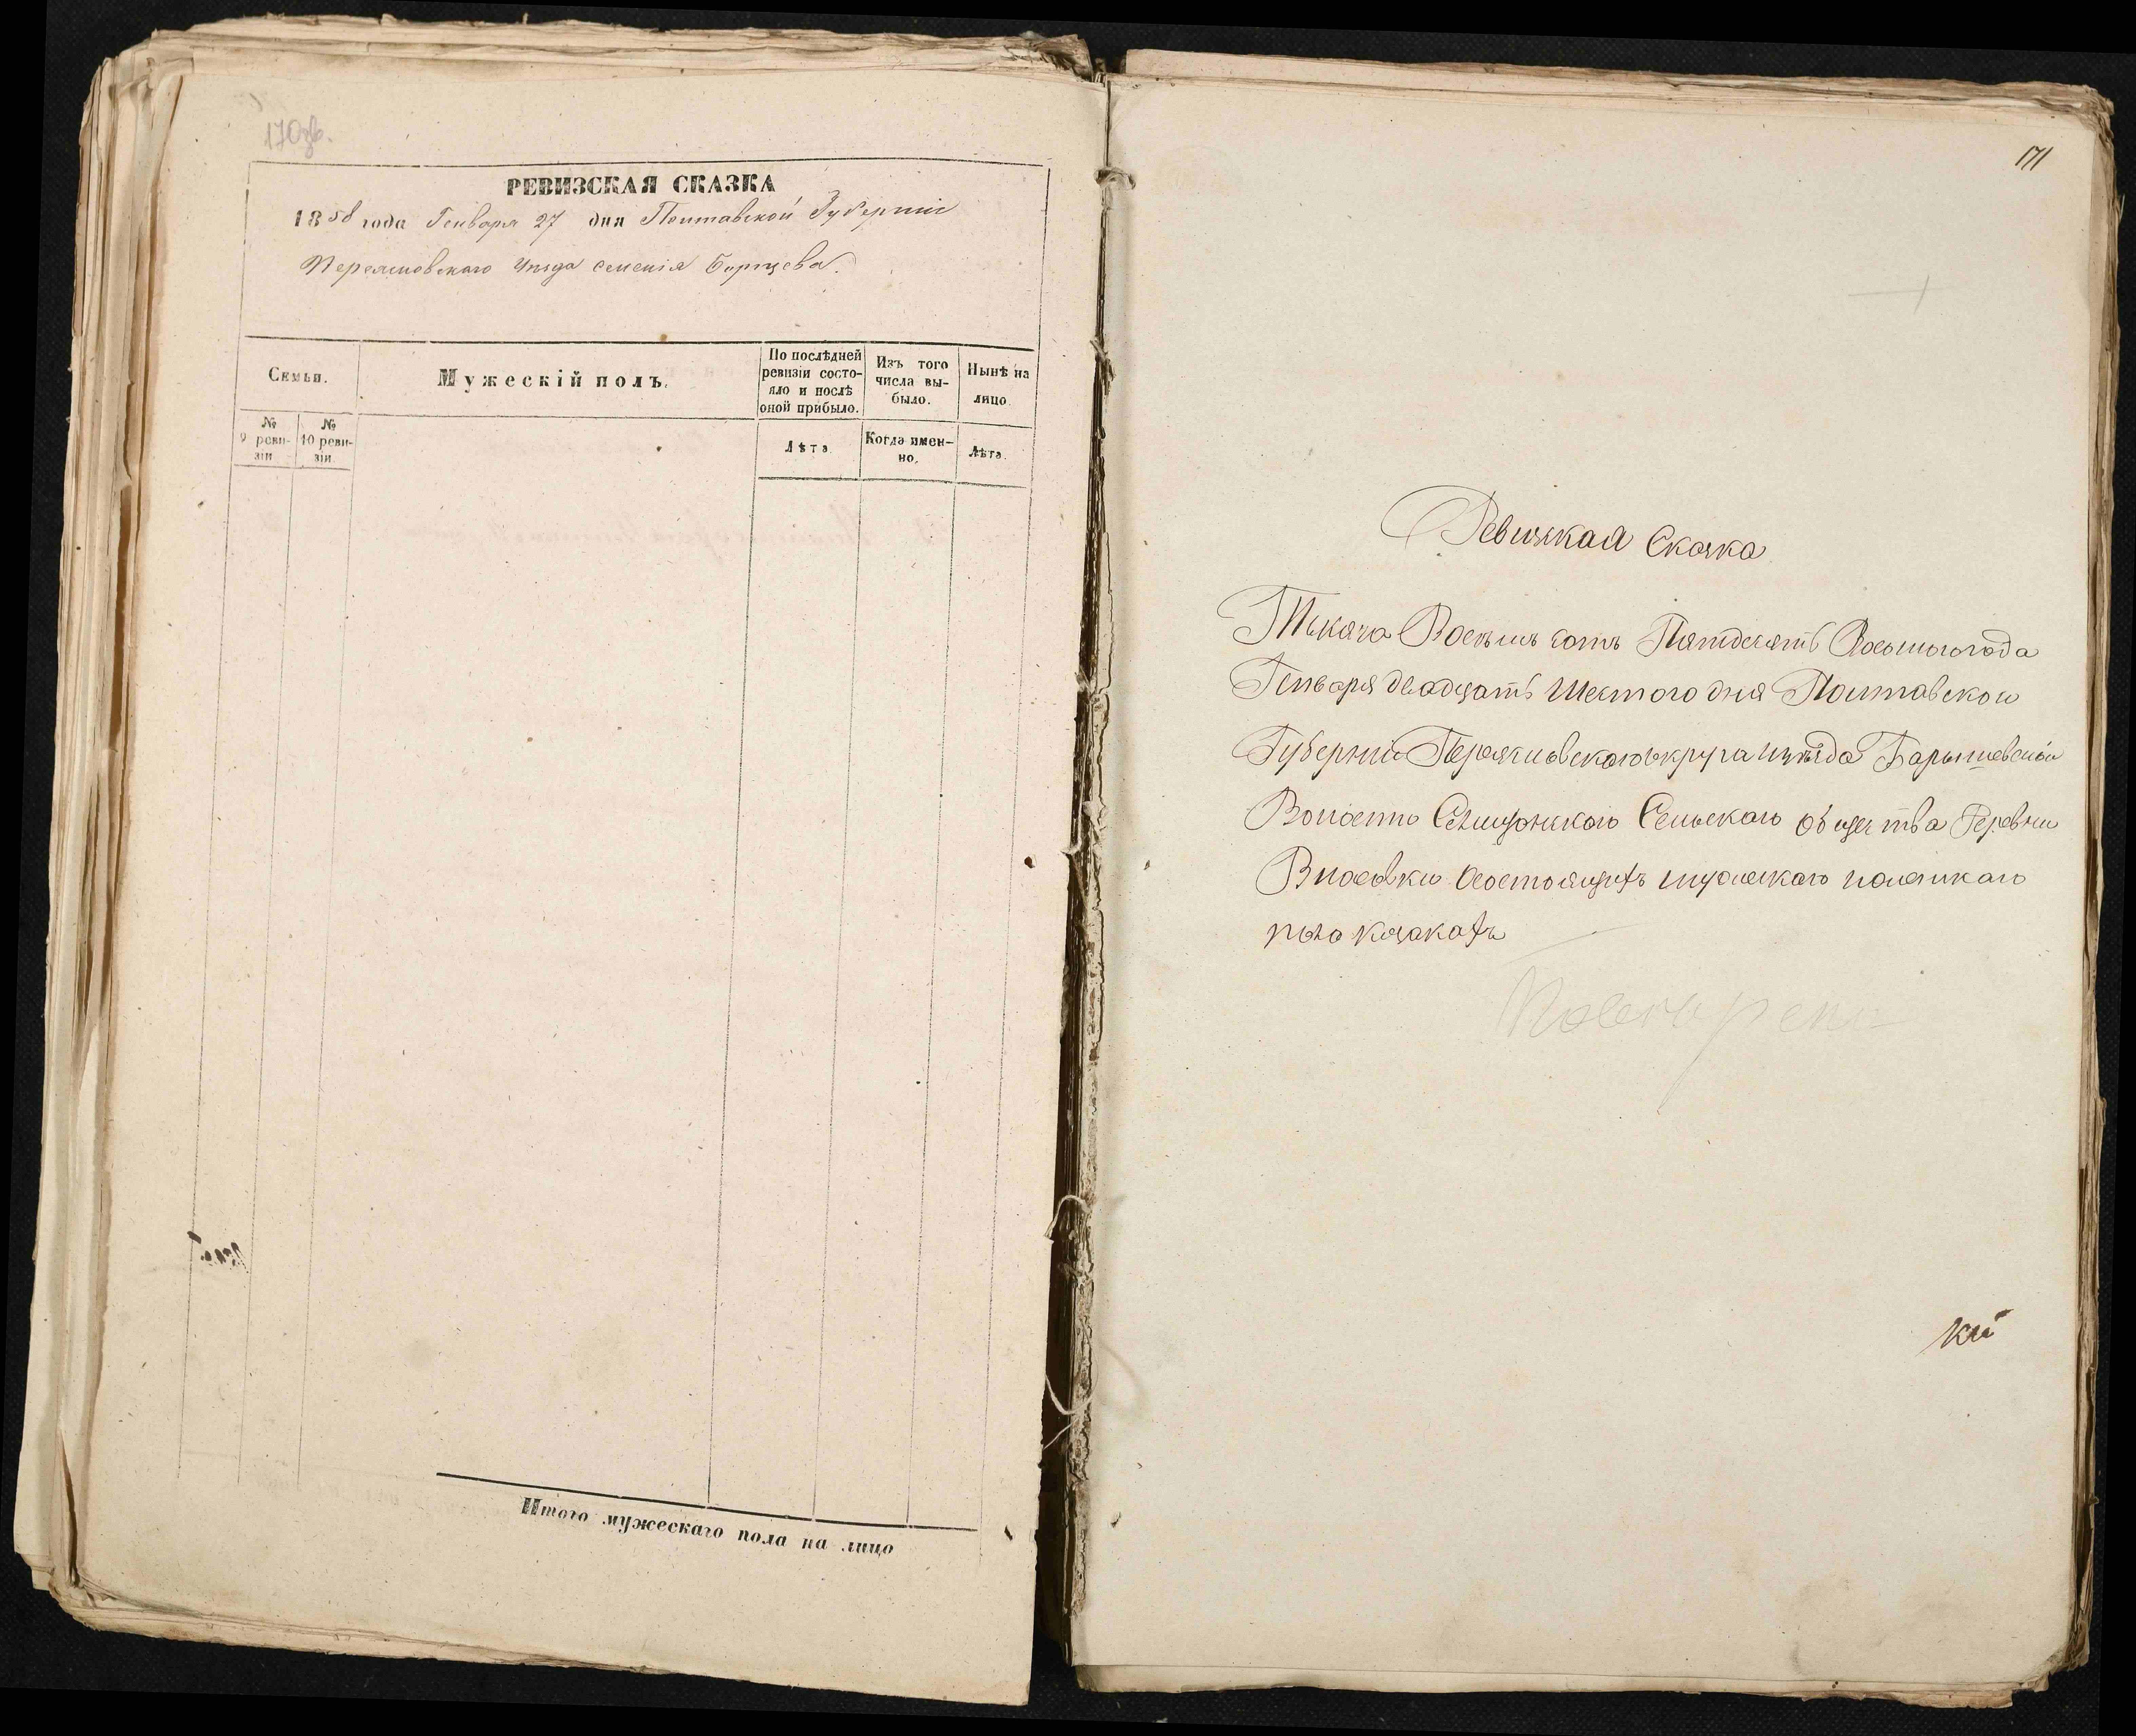 170зв.
РЕВИЗСКАЯ СКАЗКА
1858 года Генваря 27 дня Полтавской Губерніи
Переясловскаго Уезда селенія Борщева.
Семьи.
Мужескій полъ.
По послѣдней ревизіи состо-
яло и послѣ
оной прибыло.
Изъ того
числа вы-
было.
Нынѣ на
лицо
№
9 реви-
зіи
№
10 реви-
зіи.
Лѣта.
Когда имен-
но.
Лѣта.
Итого мужескаго пола на лицо
171
Ревизкая Сказка
Тысяча Восемь сотъ Пятдесятъ Восьмого года
Генваря двадцатъ Шестого дня Полтавской
Губерніи Переясловского округа иуезда Барышевской
Волости Селищанского Сельскаго общества Деревни
Власовки Состоящихъ мужескаго
пола казакахъ
кій